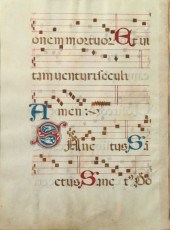 onem mortuorũ Et ui
tam uenturi seculi
Amen
Sanctus Sa
nctus Sanctus Do